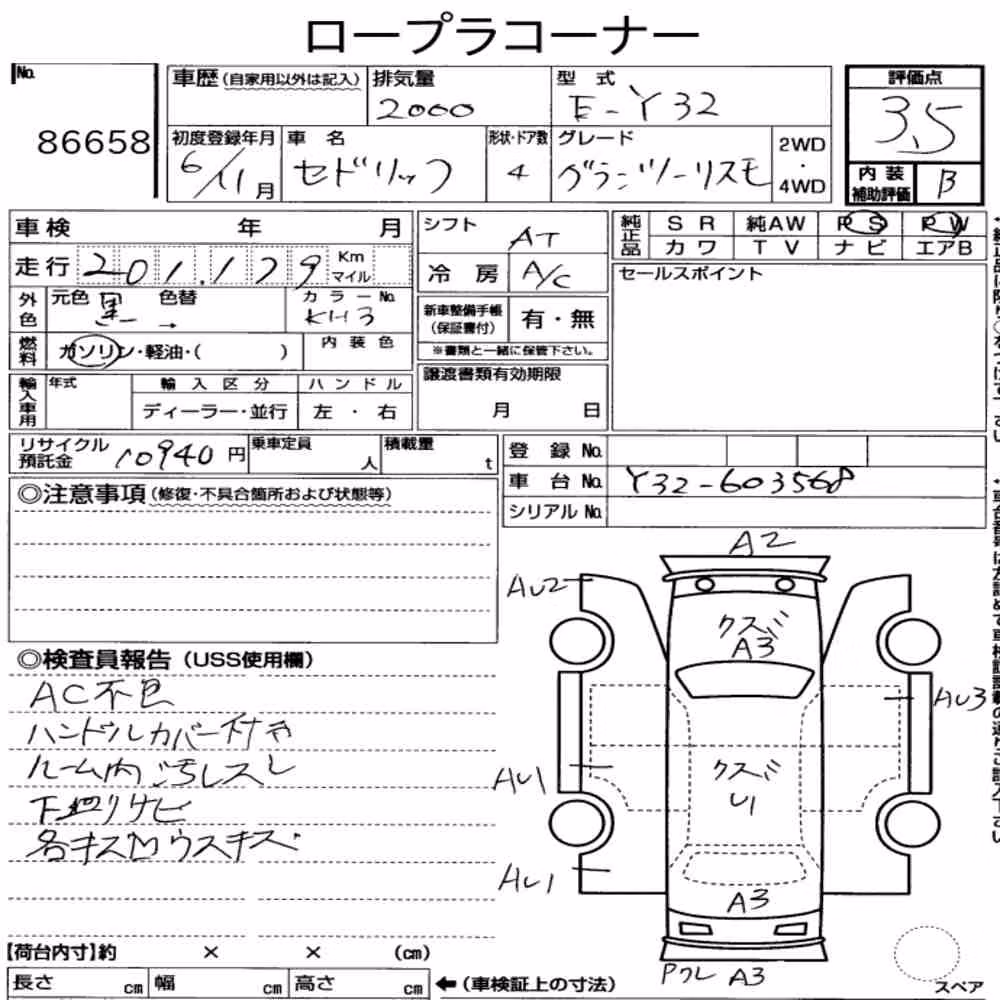 ロープラコーナー
No.
86658
車歴(自家用以外は記入)
排気量
2000
型 式
E-Y32
評価点
3.5
初度登録年月
6/11月
車 名
セドリック
形状・ドア数
4
グレード
グランツーリスモ
2WD
・
4WD
内 装
補助評価
B
車検 年 月
シフト
AT
純正品
S R
純AW
P S
P W
カ ワ
T V
ナ ビ
エアB
走行
201.179
Km
マイル
冷 房
A/C
セールスポイント
外色
元色
黒
色替
→
カラーNo.
KH3
新車整備手帳
(保証書付)
有・無
※書類と一緒に保管下さい。
燃料
ガソリン・軽油・( )
内 装 色
輸入車用
年式
輸 入 区 分
ハ ン ド ル
ディーラー・並行
左 ・ 右
譲渡書類有効期限
月 日
リサイクル
預託金
10940円
乗車定員
人
積載量
t
登 録 No.
車 台 No.
Y32-603568
シリアル No.
◎注意事項(修復・不具合箇所および状態等)
◎検査員報告(USS使用欄)
AC不良
ハンドルカバー付き
ルーム内汚レスレ
下廻リサビ
各キズ凹ウスキズ
A2
AU2
クスミ
A3
AU3
AU1
クスミ
U1
AU1
A3
Pクレ A3
スペア
【荷台内寸】約 × × (cm)
長さ cm
幅 cm
高さ cm
←(車検証上の寸法)